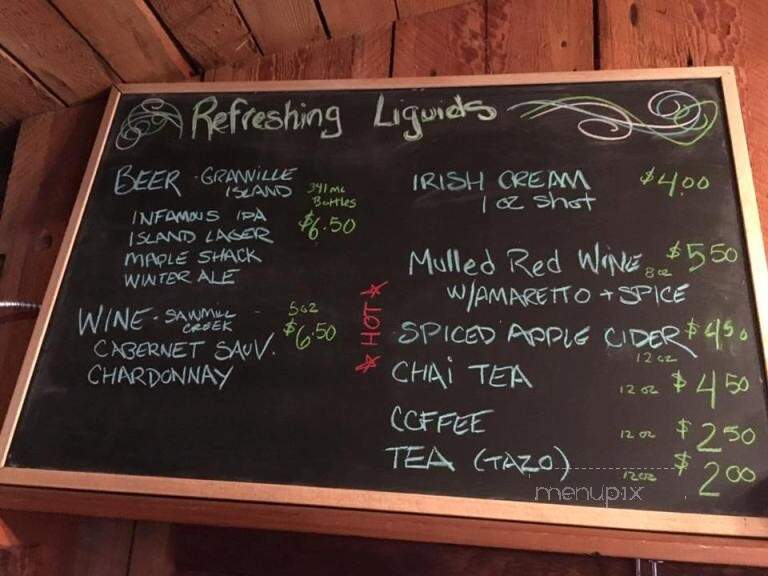 Refreshing Liquids
BEER - GRANVILLE
ISLAND
341 ML
Bottles
$6.50
INFAMOUS IPA
ISLAND LAGER
MAPLE SHACK
WINTER ALE
WINE - SAWMILL
CREEK
5 oz
$6.50
CABERNET SAUV.
CHARDONNAY
IRISH CREAM $4.00
1 oz shot
HOT
Mulled Red WiNE 8 oz $5.50
W/AMARETTO + SPICE
SPICED APPLE CIDER $4.50
12 oz
CHAi TEA 12 oz $4.50
COFFEE 12 oz $2.50
TEA (TAZO) 12 oz $2.00
menupix